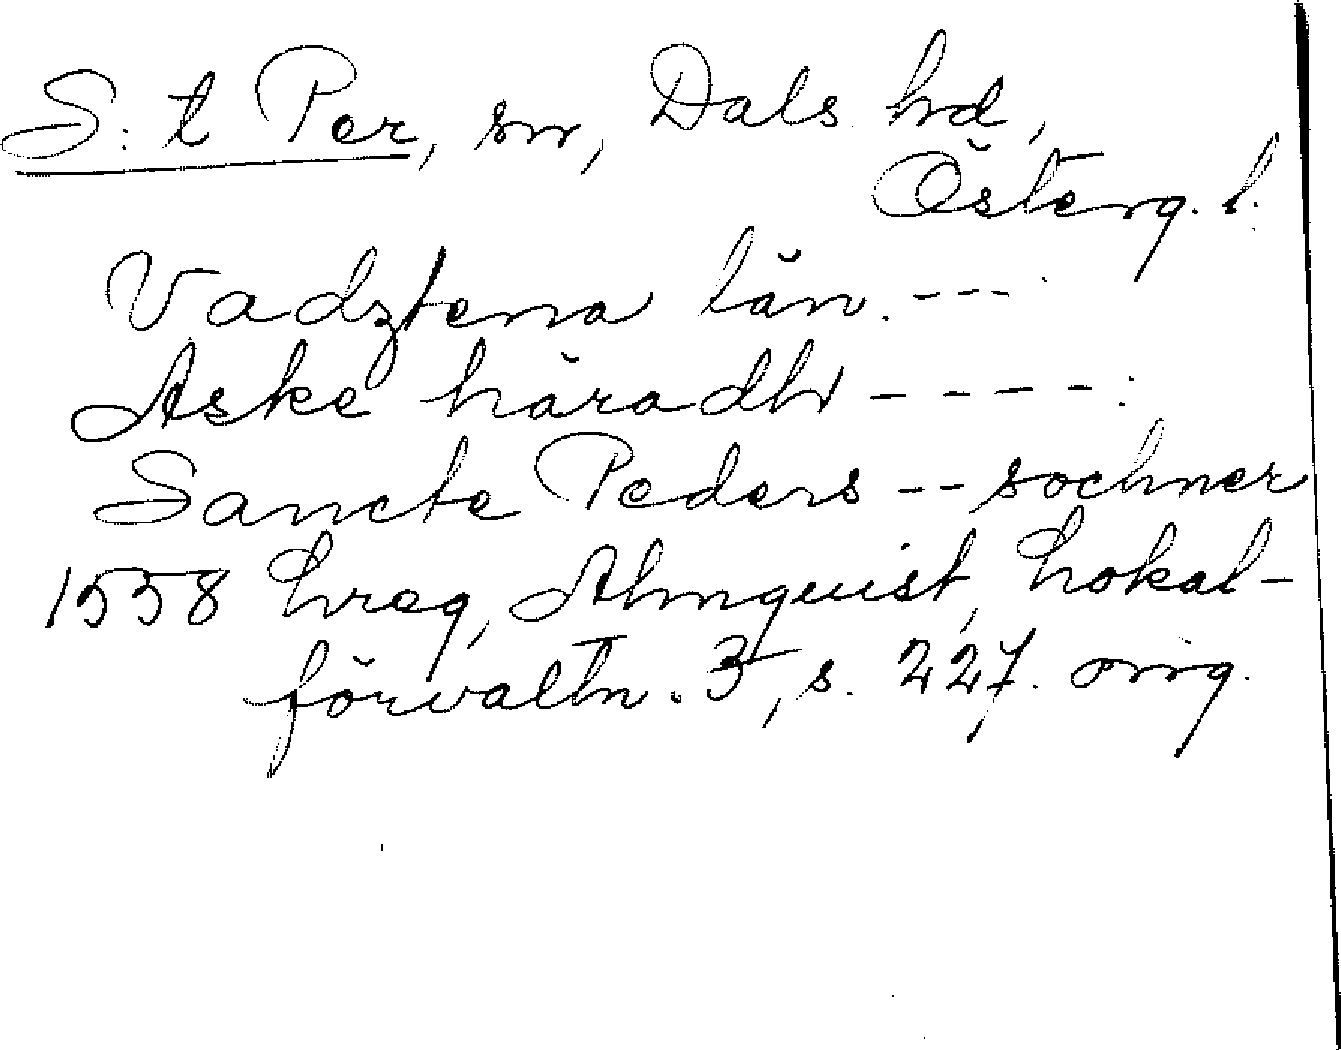 S:t Per, sn, Dals hd,
Österg. l.
Vadztena län. ---
Aske häradh ----:
Sancte Peders -- sochner
1558 hreg, Almquist, Lokal-
förvaltn. 3, s. 227. orig.